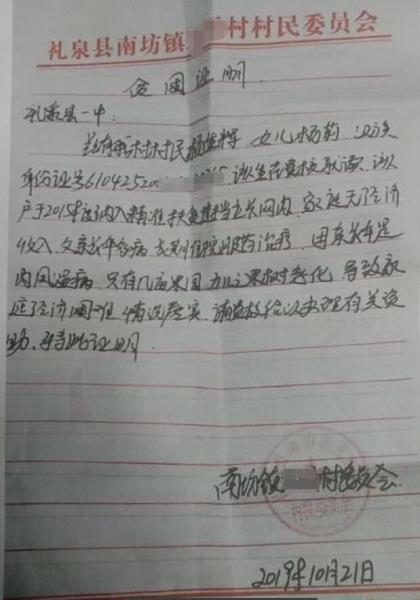 礼泉县南坊镇 村村民委员会
贫困证明
礼泉县一中:
兹有我村村民杨 女儿杨 汉族
身份证号6104252 该生在贵校就读、该
户于2015年被纳入精准扶贫 网内、家庭无经济
收入、父亲长年多病 长期住院服药治疗 母亲长年患
风湿病 只有几亩果园 加之果树老化、导致家
庭经济困难 情况属实、请贵校给以办理有关资
助、特此证明.
南坊镇 村委会
2019年10月21日